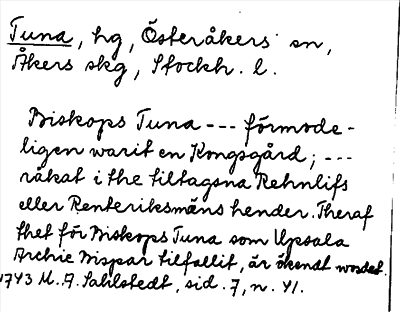 Tuna, hg, Österåkers sn,
Åkers skg, Stockh. l.
Biskops Tuna --- förmode-
ligen warit en Kongsgård; ---
råkat i the tiltagsna Rehnlifs
eller Renteriksmäns hender. Theraf
thet för Biskops Tuna som Upsala
Archie Bispar tilfallit, är ökendt wordet.
1743 M. A. Sahlstedt, sid. 7, n. 41.